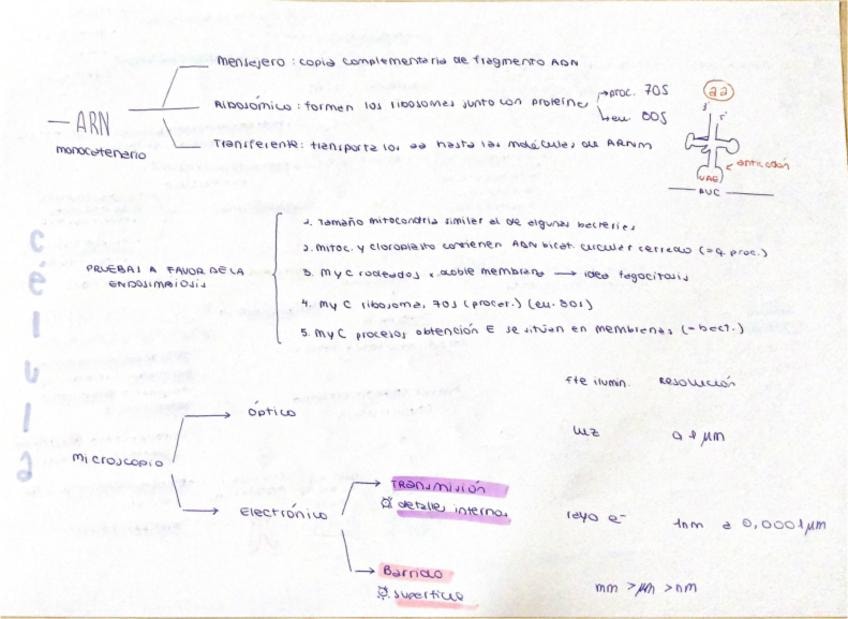 Mensajero: copia complementaria de fragmento ADN
— ARN
monocatenario
Ribosómico: forman los ribosomas junto con proteínas → proc. 70S
→ eu. 80S
Transferente: transporta los aa hasta las moléculas de ARNm
aa
3'
5'
anticodón
UAG
AUC
célula
PRUEBAS A FAVOR DE LA
ENDOSIMBIOSIS
1. Tamaño mitocondria similar al de algunas bacterias
2. Mitoc. y cloroplasto contienen ADN bicat. circular cerrado (=q. proc.)
3. M y C rodeados x doble membrana → idea fagocitosis
4. M y C ribosomas 70S (procar.) (eu. 80S)
5. M y C procesos obtención E se sitúan en membranas (= bact.)
fte ilumin. Resolución
Microscopio
óptico
luz
0,1 μm
Electrónico
Transmisión
detalles internos
rayo e⁻
1nm a 0,0001 μm
Barrido
superficie
mm > μm > nm